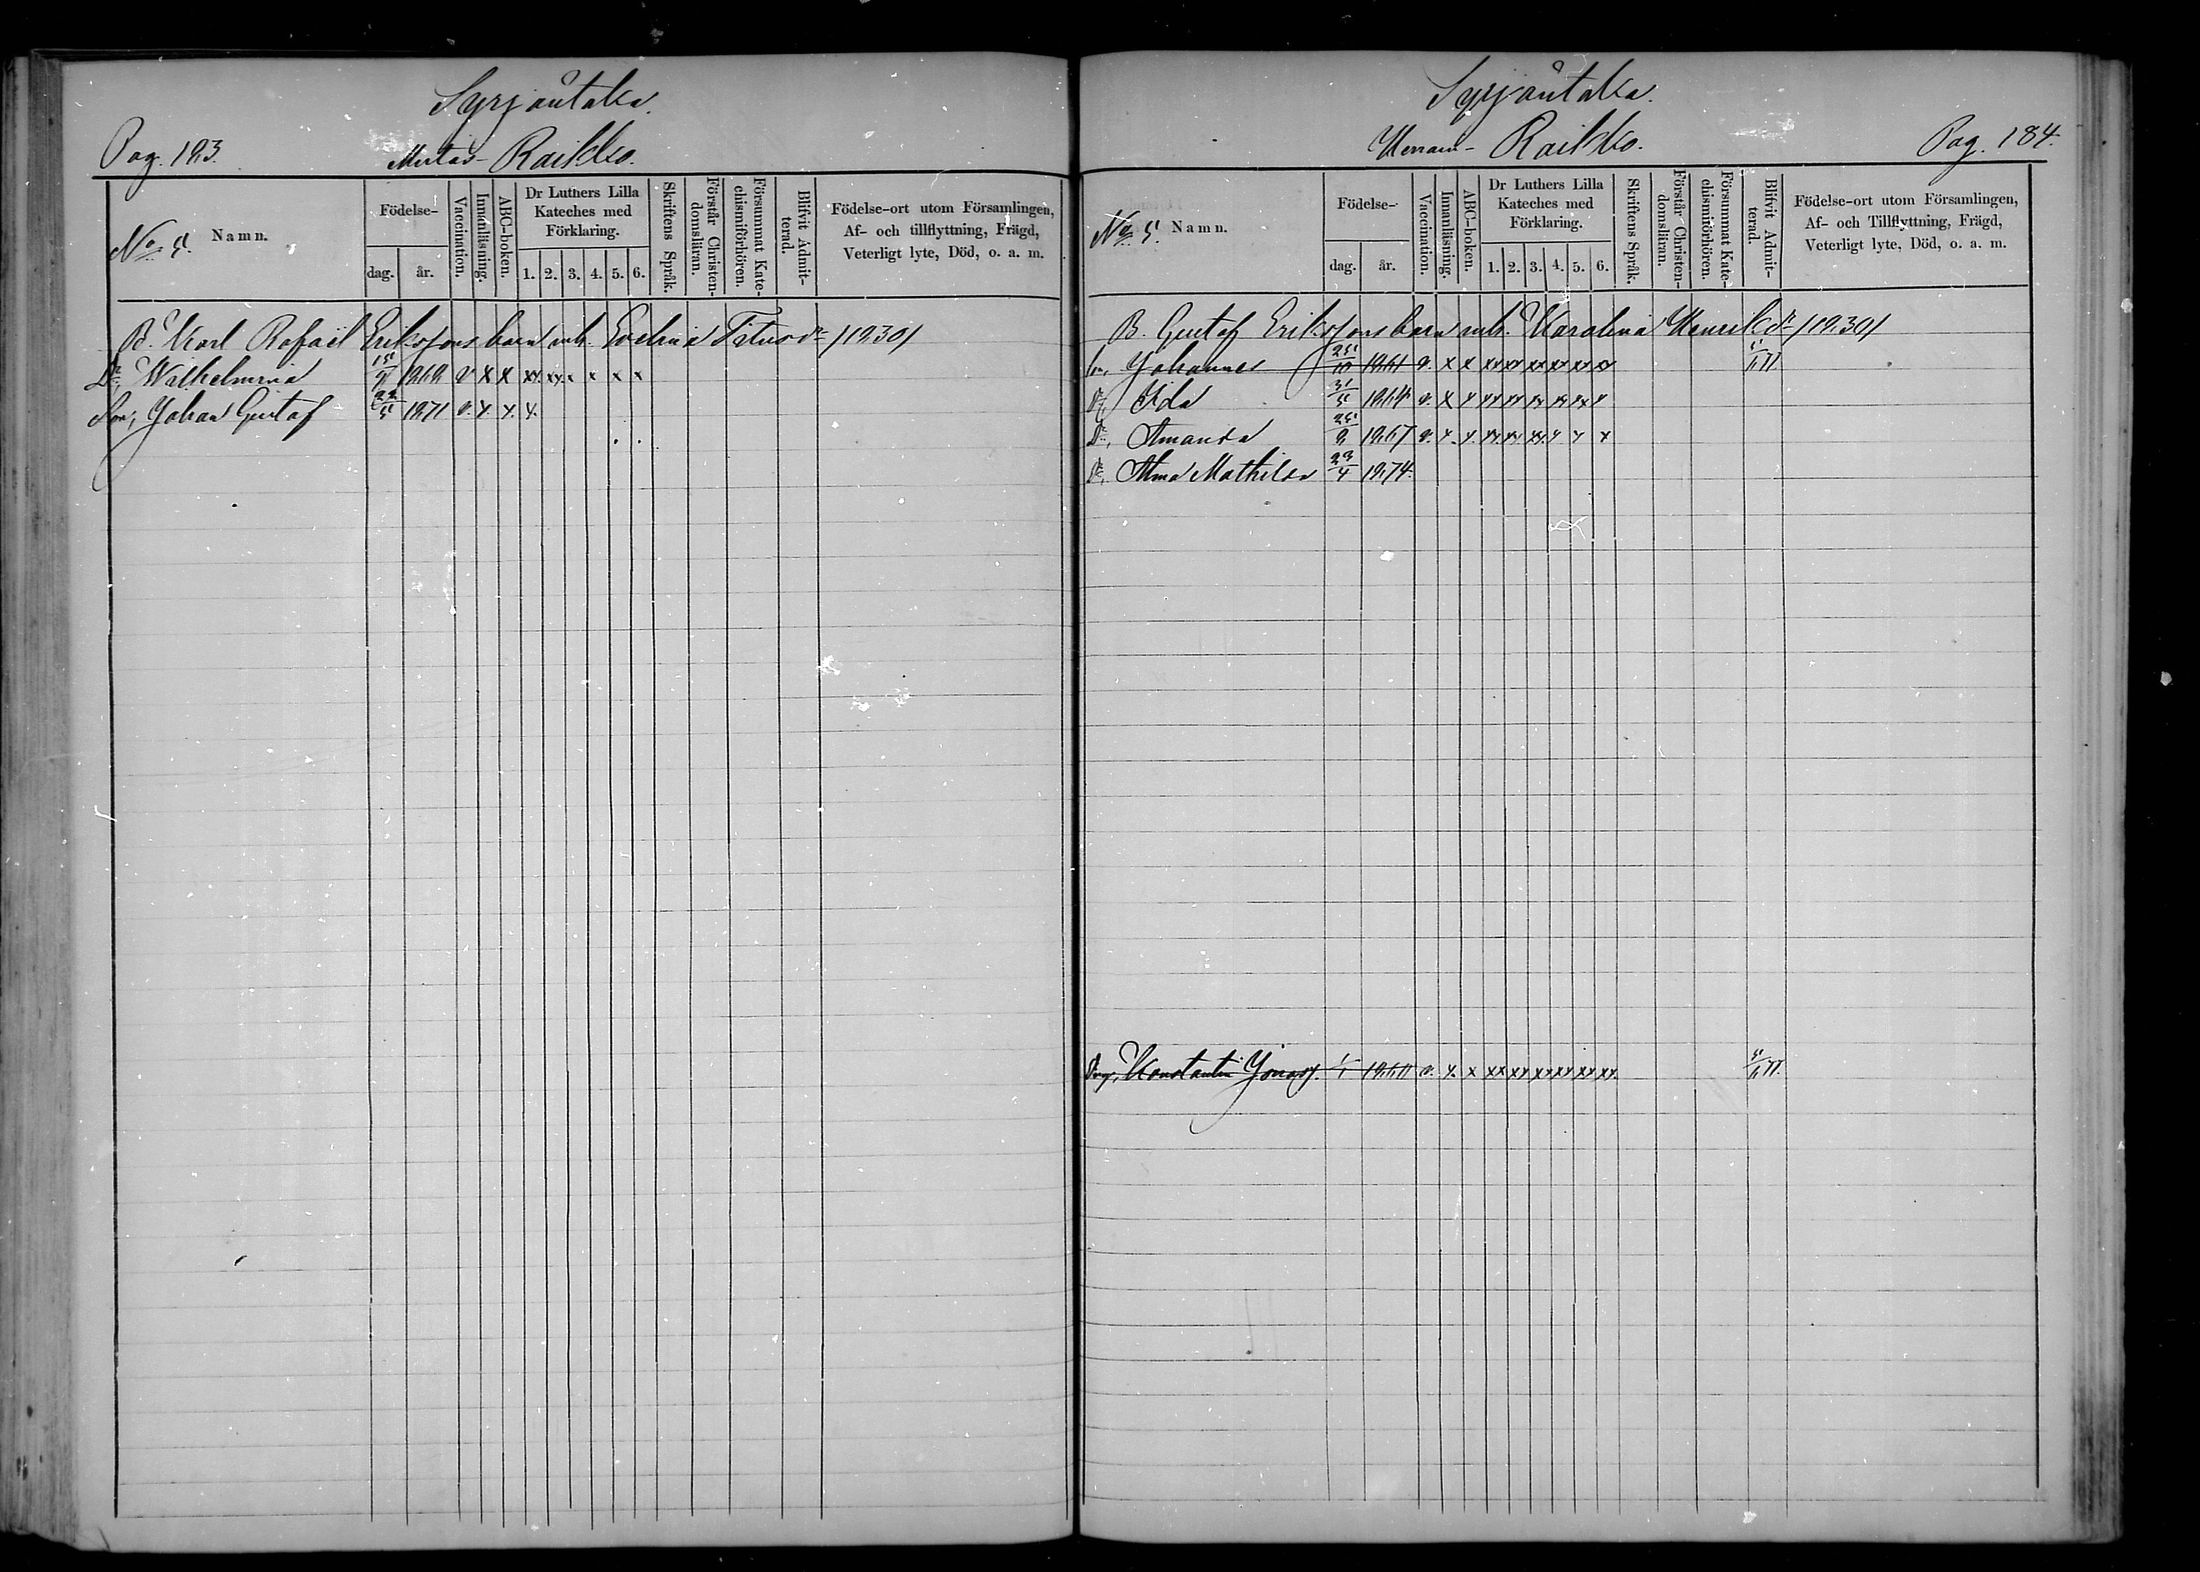 Syrjäntaka.
Pag. 183.
Mutas- Raikko.
No 5.
Namn.
Födelse-
dag.
år.
Vaccination.
Innanläsning.
ABC-boken.
Dr Luthers Lilla Kateches med Förklaring.
1. 2. 3. 4. 5. 6.
Skriftens Språk.
Förstår Christendomsläran.
Försummat Katechismiförhören.
Blifvit Admitterad.
Födelse-ort utom Församlingen,
Af- och tillflyttning, Frägd,
Veterligt lyte, Död, o. a. m.
B. Karl Rafael Erikssons barn mh. Evelina Titusdr /1830/
Dr, Wilhelmina 1868 v x x xx xx x x x x
Son, Johan Gustaf 22/5 1871 v. x x. x.
Syrjäntaka.
Pag. 184.
Raikko.
No 5.
Namn.
Födelse-
dag.
år.
Vaccination.
Innanläsning.
ABC-boken.
Dr Luthers Lilla Kateches med Förklaring.
1. 2. 3. 4. 5. 6.
Skriftens Språk.
Förstår Christendomsläran.
Försummat Katechismiörhören.
Blifvit Admitterad.
Födelse-ort utom Församlingen,
Af- och Tillflyttning, Frägd,
Veterligt lyte, Död, o. a. m.
B. Gustaf Erikssons barn mh. Karolina Henriksdr /1830/
Son, Johannes 25/10 1861 v. x x xx xx xx xx xx xx
Dr, Ida 31/5 1864 v. x x xx xx xx xx xx x
Dr, Amanda 25/8 1867 v. x. x. xx. xx. xx. x x x
Dr, Alma Mathilda 23/4 1874.
Dreng, Konstantin Jonass. 1/1 1860 v. x. x xx xx xx xx xx xx.